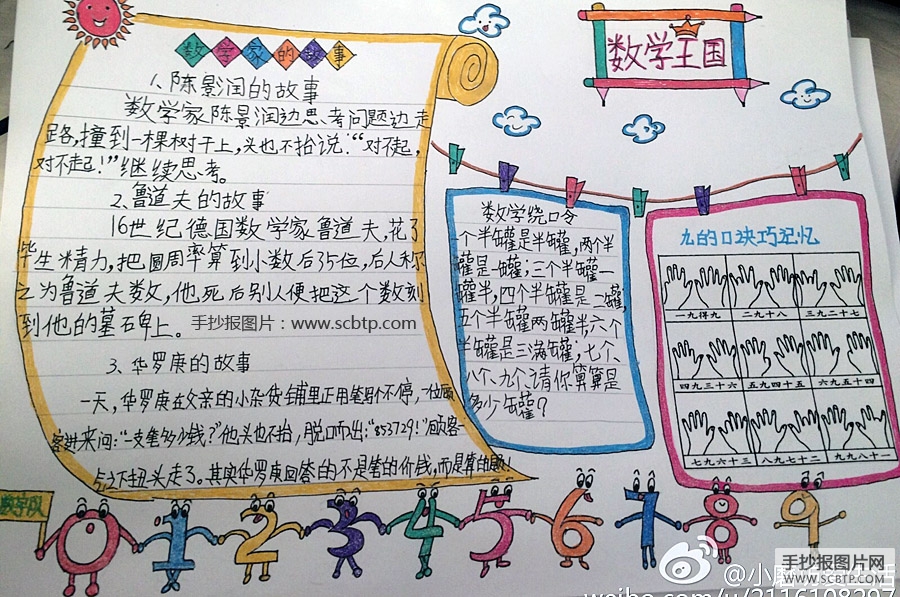 数学家的故事
1、陈景润的故事
数学家陈景润边思考问题边走
路,撞到一棵树干上,头也不抬说:“对不起,
对不起!”继续思考。
2、鲁道夫的故事
16世纪德国数学家鲁道夫,花了
毕生精力,把圆周率算到小数后35位,后人称
之为鲁道夫数,他死后别人便把这个数刻
到他的墓石碑上。
手抄报图片:www.scbtp.com
3、华罗庚的故事
一天,华罗庚在父亲的小杂货铺里正用笔算个不停,一位顾
客进来问:“一支笔多少钱?”他头也不抬,脱口而出:“853729!”顾客一
扭头走了。其实华罗庚回答的不是笔的价钱,而是算的题!
数学王国
数学绕口令
一个半罐是半罐,两个半
罐是一罐;三个半罐一
罐半,四个半罐是二罐,
五个半罐两罐半六个
半罐是三满罐;七个、
八个、九个请你算算是
多少罐?
九的口诀巧记忆
一九得九 二九十八 三九二十七
四九三十六 五九四十五 六九五十四
七九六十三 八九七十二 九九八十一
数学
0 1 2 3 4 5 6 7 8 9
手抄报图片网
WWW.SCBTP.COM
@小
weibo.com/u/2116108297